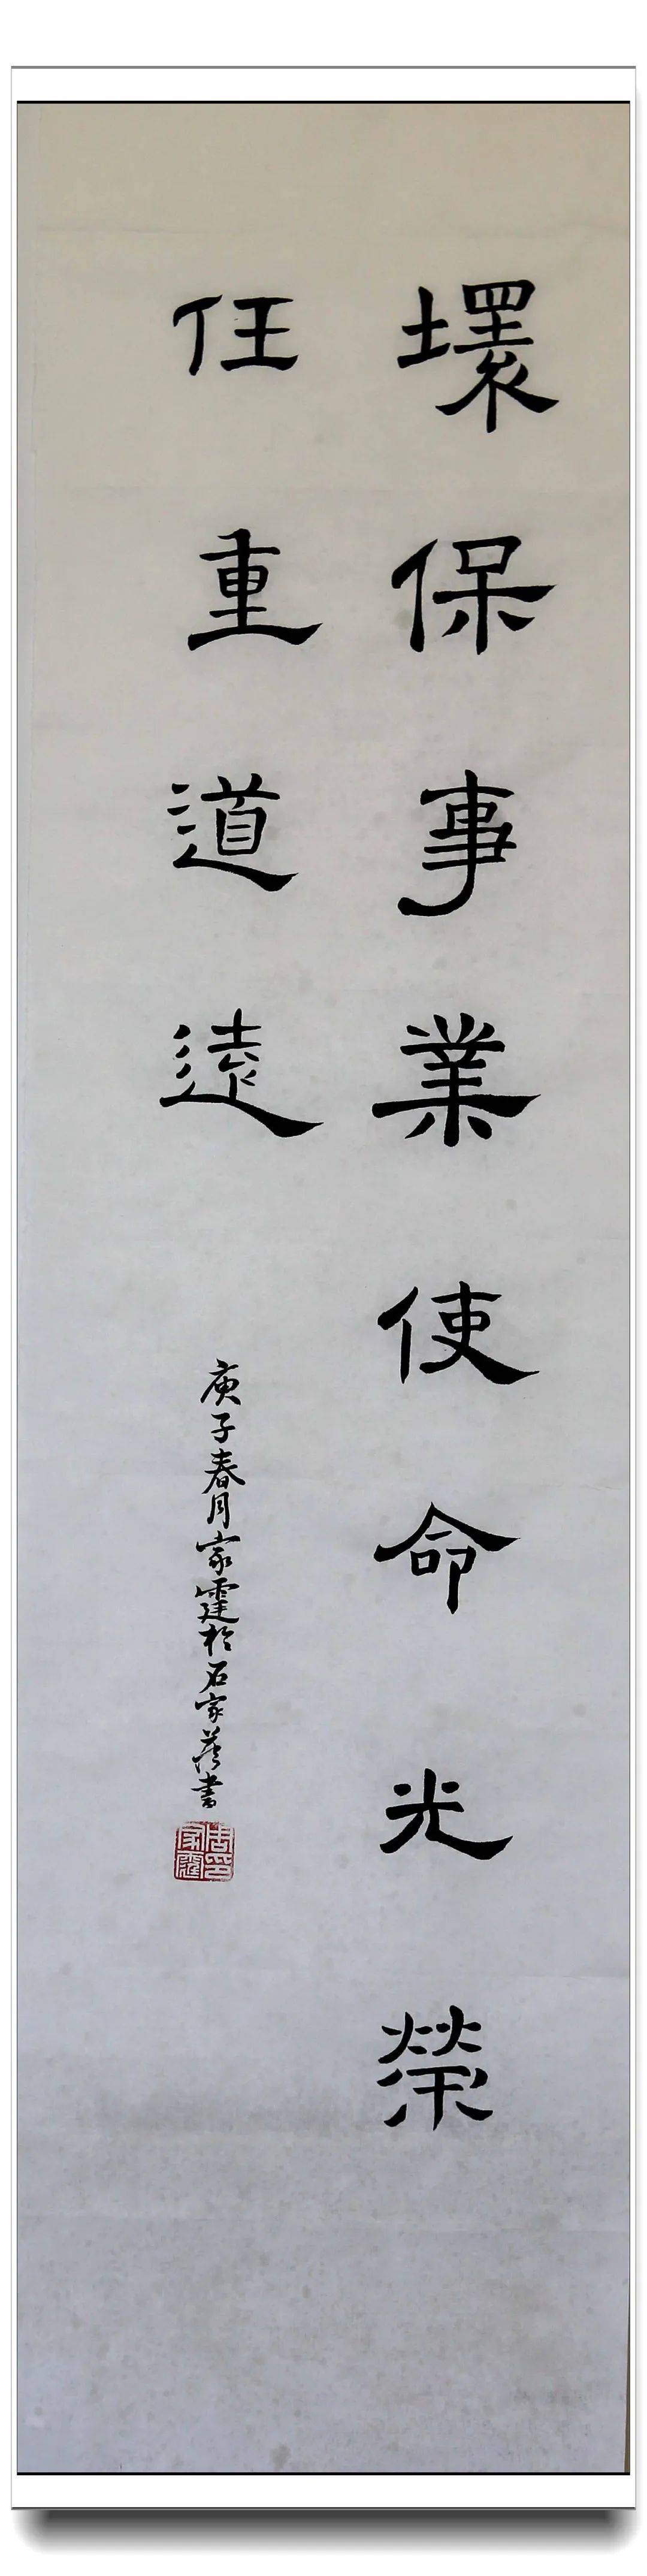 環保事業使命光榮
任重道遠
庚子春月家霆於石家莊書
周家霆印